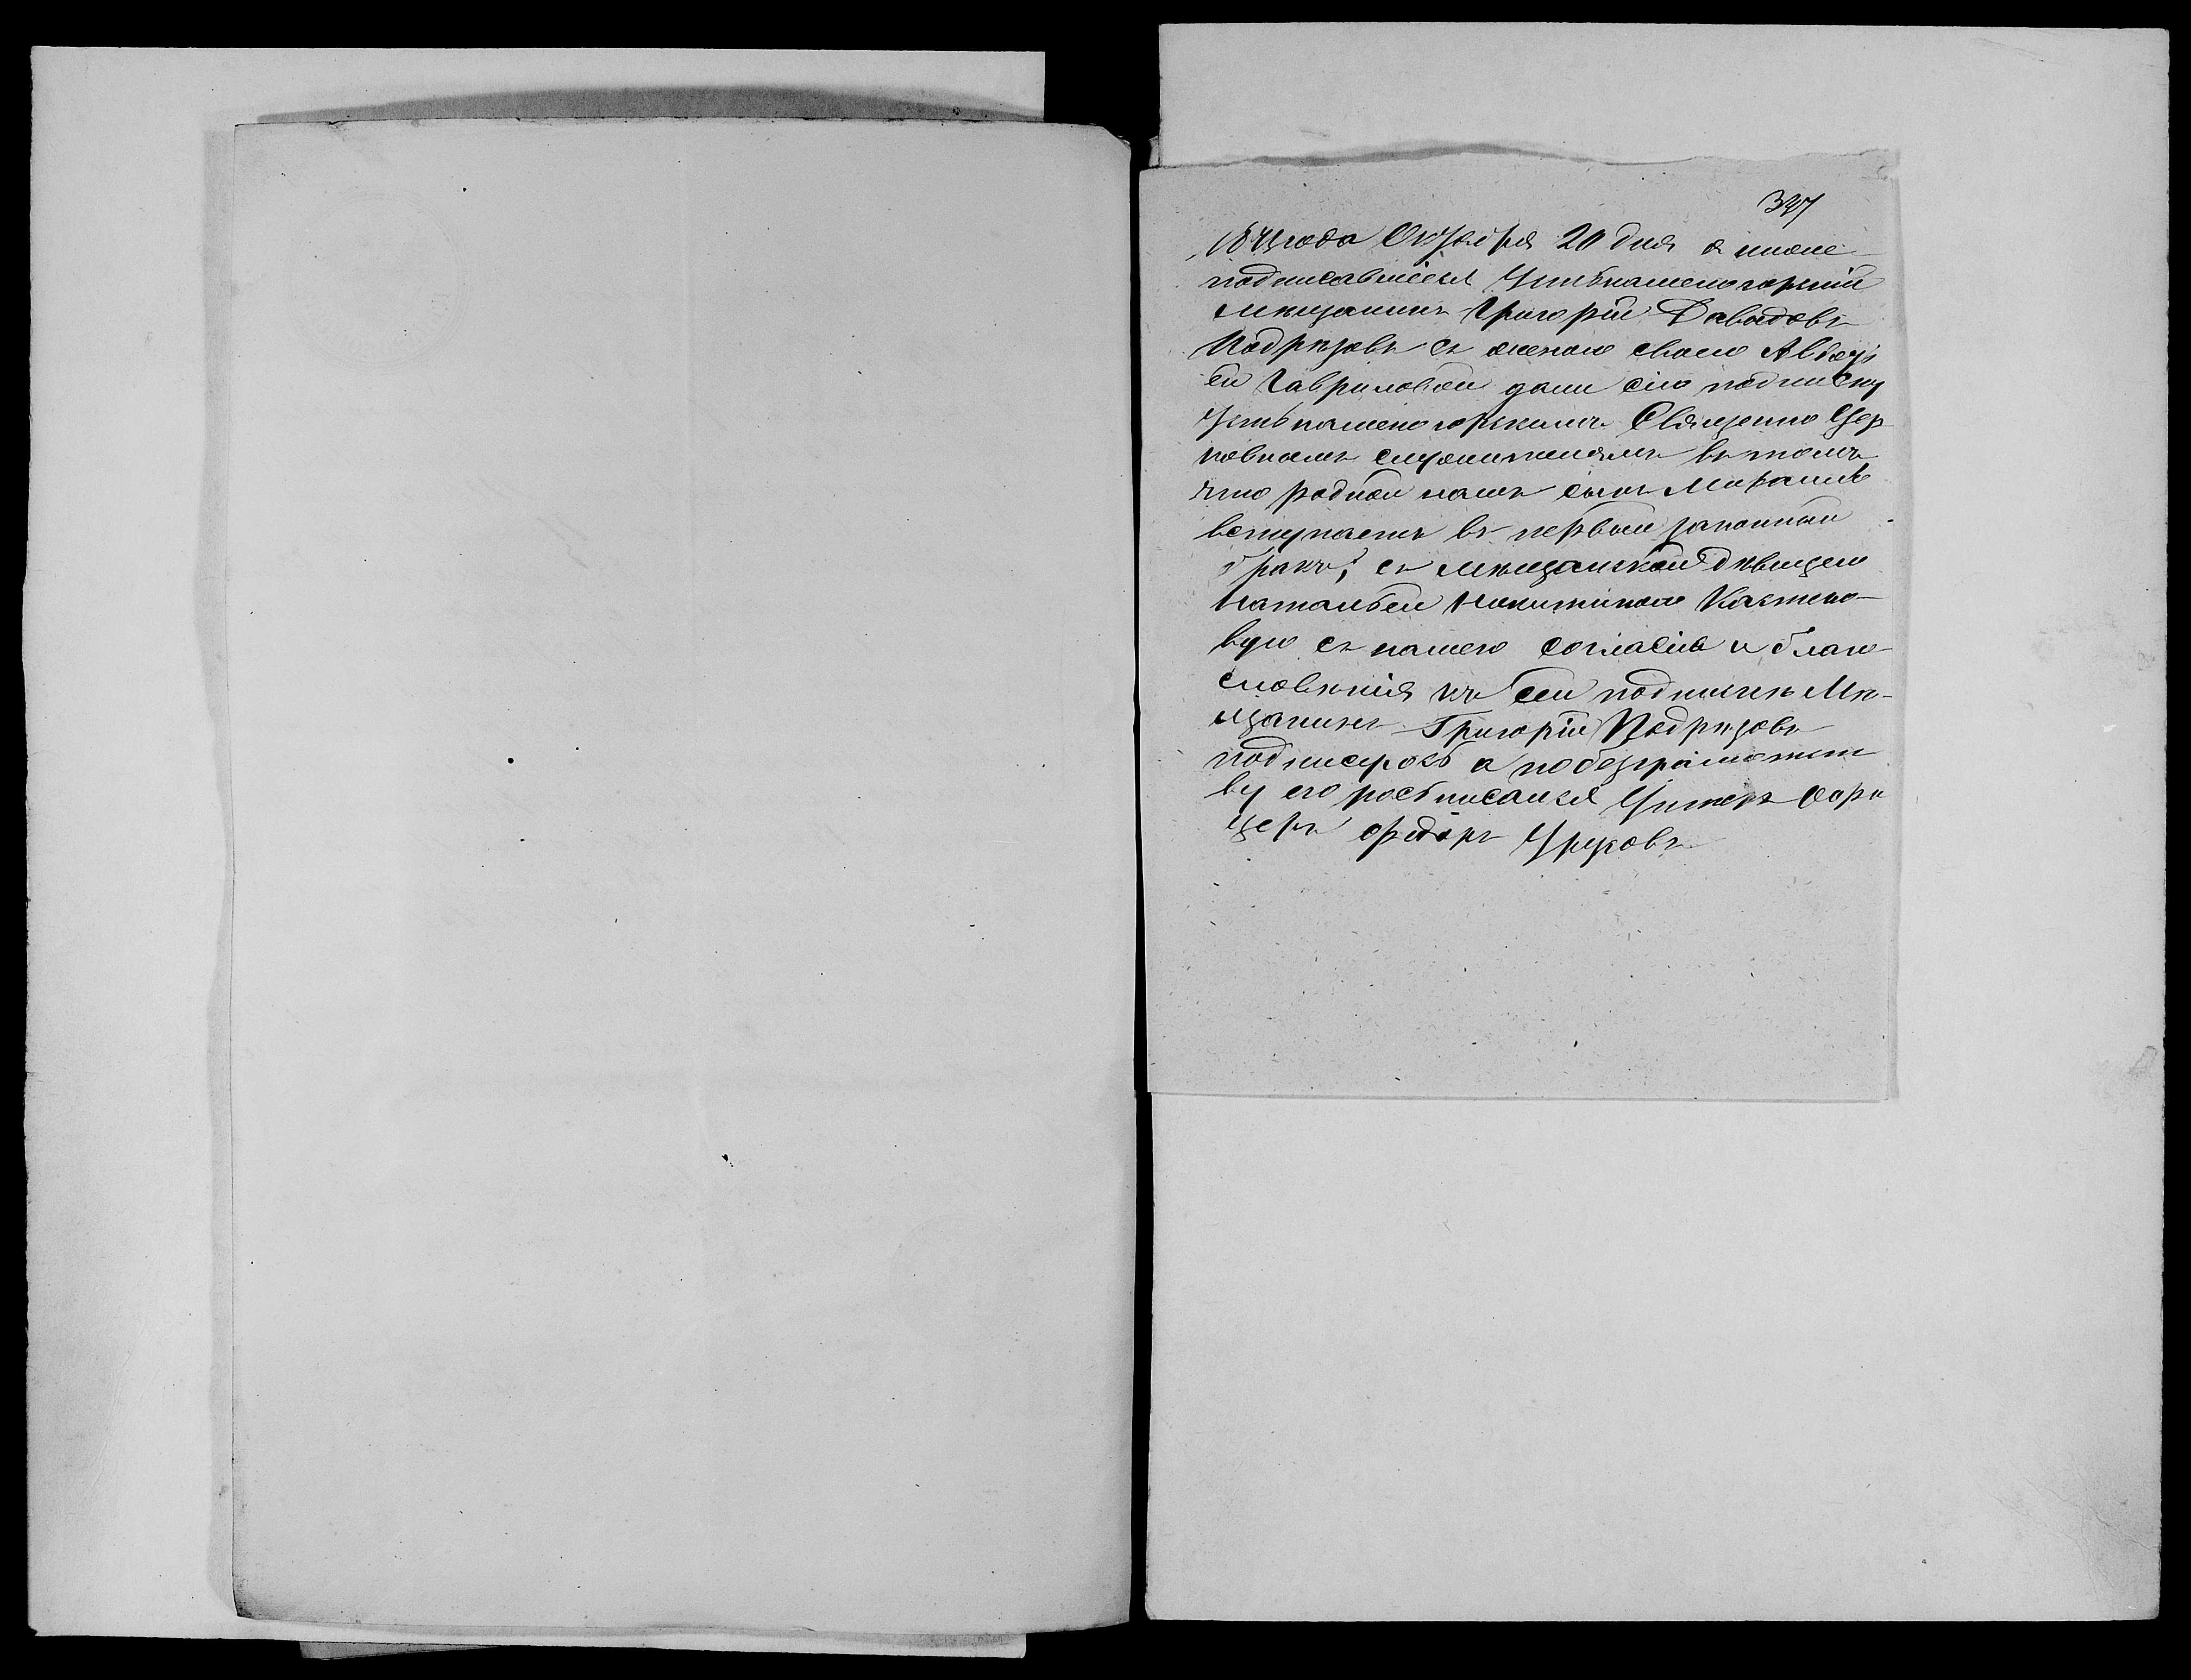 337
года Октября 20 дня я ниже
подписавшіеся Устькаменогорскій
мѣщанинъ Григорій Давыдовъ
Подрѣзовъ съ женою своею Авдоть
ей Гавриловой дали сію подписку
Устькаменогорскимъ Священно Цер
ковнамъ служителямъ въ томъ
что родной нашъ сынъ Михаилъ
вступаетъ въ первый законный
бракъ, съ мѣщанской дѣвицею
Натальей Никитиной Костко-
вую съ нашего согласія и благо-
словѣнія къ сей подпискѣ Мѣ-
щанинъ Григорій Подрѣзовъ
подписуюсь а по безграмотност
ву его росписался Унтеръ Офи
церъ Федоръ